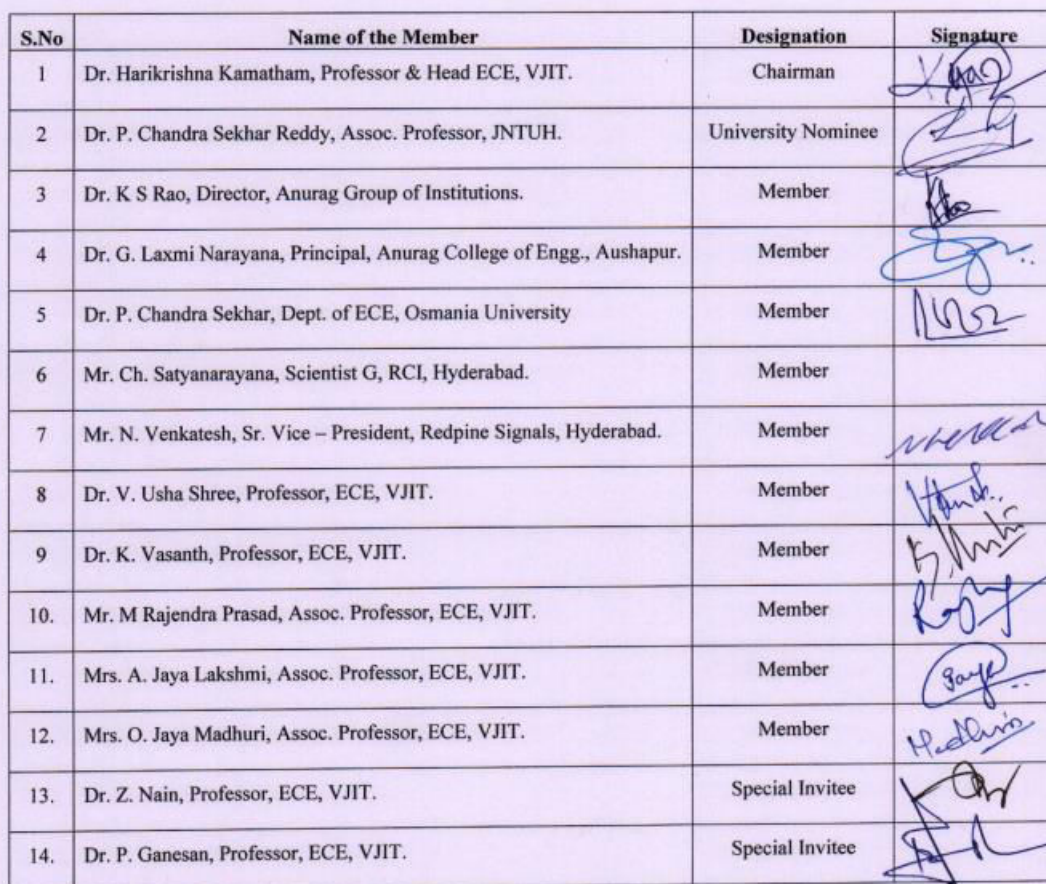 S.No Name of the Member Designation Signature
1 Dr. Harikrishna Kamatham, Professor & Head ECE, VJIT. Chairman
2 Dr. P. Chandra Sekhar Reddy, Assoc. Professor, JNTUH. University Nominee
3 Dr. K S Rao, Director, Anurag Group of Institutions. Member
4 Dr. G. Laxmi Narayana, Principal, Anurag College of Engg., Aushapur. Member
5 Dr. P. Chandra Sekhar, Dept. of ECE, Osmania University Member
6 Mr. Ch. Satyanarayana, Scientist G, RCI, Hyderabad. Member
7 Mr. N. Venkatesh, Sr. Vice – President, Redpine Signals, Hyderabad. Member
8 Dr. V. Usha Shree, Professor, ECE, VJIT. Member
9 Dr. K. Vasanth, Professor, ECE, VJIT. Member
10. Mr. M Rajendra Prasad, Assoc. Professor, ECE, VJIT. Member
11. Mrs. A. Jaya Lakshmi, Assoc. Professor, ECE, VJIT. Member
12. Mrs. O. Jaya Madhuri, Assoc. Professor, ECE, VJIT. Member
13. Dr. Z. Nain, Professor, ECE, VJIT. Special Invitee
14. Dr. P. Ganesan, Professor, ECE, VJIT. Special Invitee